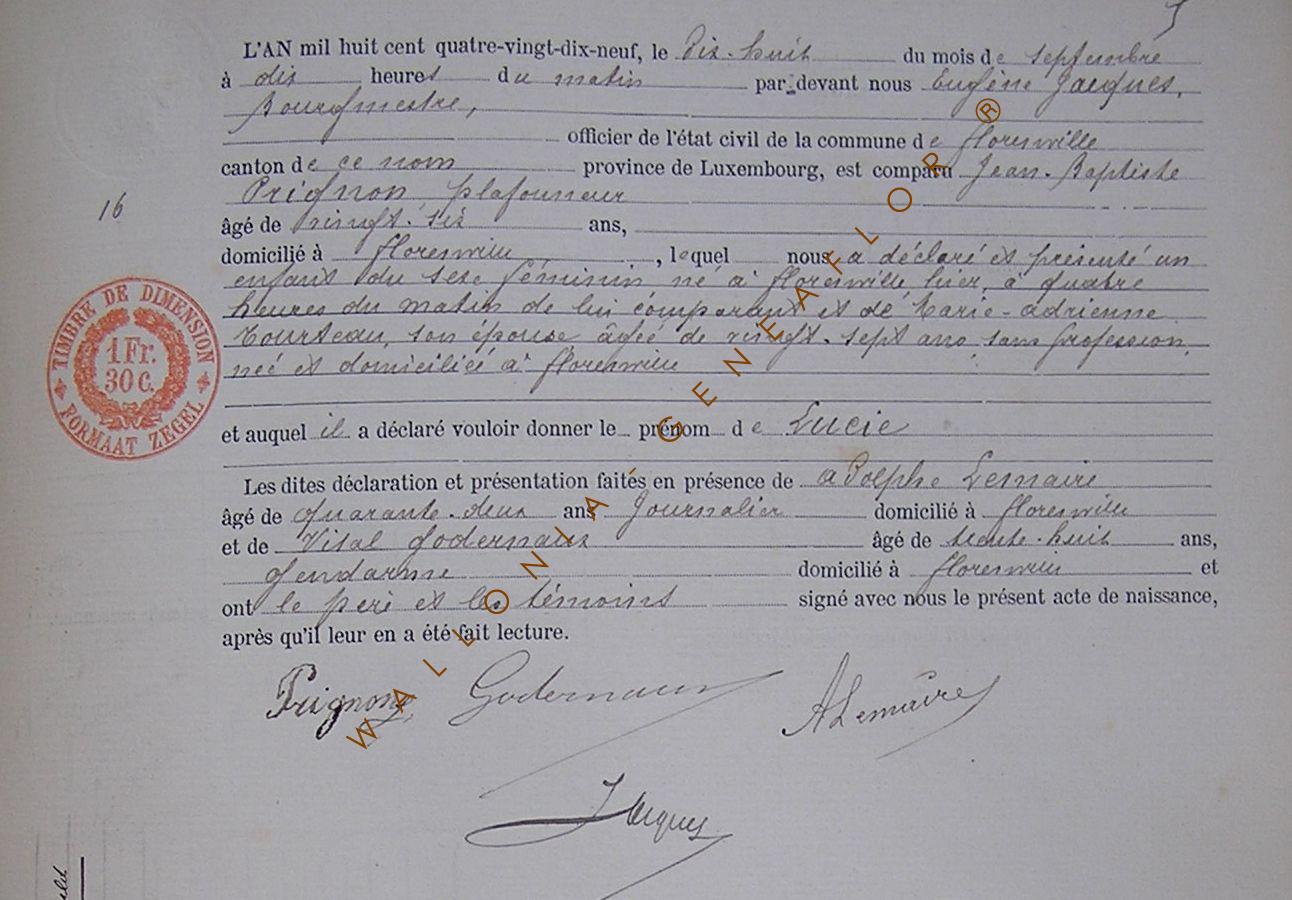 L'AN mil huit cent quatre-vingt-dix-neuf, le Dix-huit du mois de septembre
à dix heures du matin par-devant nous Eugène Jacques,
Bourgmestre,
officier de l'état civil de la commune de florenville
canton de ce nom province de Luxembourg, est comparu Jean-Baptiste
Prignon plafonneur
16
âgé de vingt-six ans,
domicilié à florenville, lequel nous a déclaré et présenté un
enfant du sexe féminin né à florenville hier, à quatre
heures du matin de lui comparant et de Marie-adrienne
Tourteau, son épouse âgée de vingt-sept ans, sans profession,
née et domiciliée à florenville
TIMBRE DE DIMENSION
1 Fr.
30 C.
FORMAAT ZEGEL
et auquel il a déclaré vouloir donner le prénom de Lucie
Les dites déclaration et présentation faites en présence de adolphe Lemaire
âgé de quarante-deux ans Journalier domicilié à florenville
et de Vital Godernaux âgé de trente-huit ans,
Gendarme domicilié à florenville et
ont le père et les témoins signé avec nous le présent acte de naissance,
après qu'il leur en a été fait lecture.
Prignon Godernaux A Lemaire
Jacques
WALLONIA GENEAFLOR ®